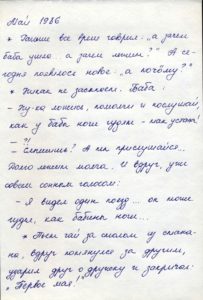 Май 1986
* Раньше все время говорил: „а зачем
баба ушла.. а зачем лошади?" А се-
годня появилось новое: „а почёму?"
* Никак не заснёт. Баба:
- Ну-ка ложись, помолчи и послушай,
как у бабы ноги гудят - как устала!
- ?!
- Слышишь? А ты прислушайся..
Долго лежит молча. И вдруг, уже
совсем сонным голосом:
- Я видел один поезд... он тоже
гудел, как бабины ноги...
* Пьём чай за столом у
на, вдруг потянулся за другим,
ударил друг о дружку и закричал:
„Первое мая!"